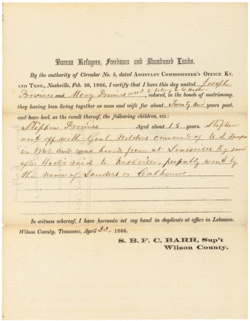 Bureau Refugees, Freedmen and Abandoned Lands.
By the authority of Circular No. 5, dated ASSISTANT COMMISSIONER'S OFFICE KY.
AND TENN., Nashville, Feb. 26, 1866, I certify that I have this day united Joseph
and Mary colored, in the bonds of matrimony,
they having been living together as man and wife for about Twenty years past,
and have had, as the result thereof, the following children, viz:
Stephen Aged about 18 years Stephen
went off with Genl command of
in 1865 and was heard from at Louisville Ky soon
after and to Nashville, probably went by
the name of Sanders or
In witness whereof, I have hereunto set my hand in duplicate at office in Lebanon,
Wilson County, Tennessee, April 1866.
S. B. F. C. BARR, Sup't
Wilson County.